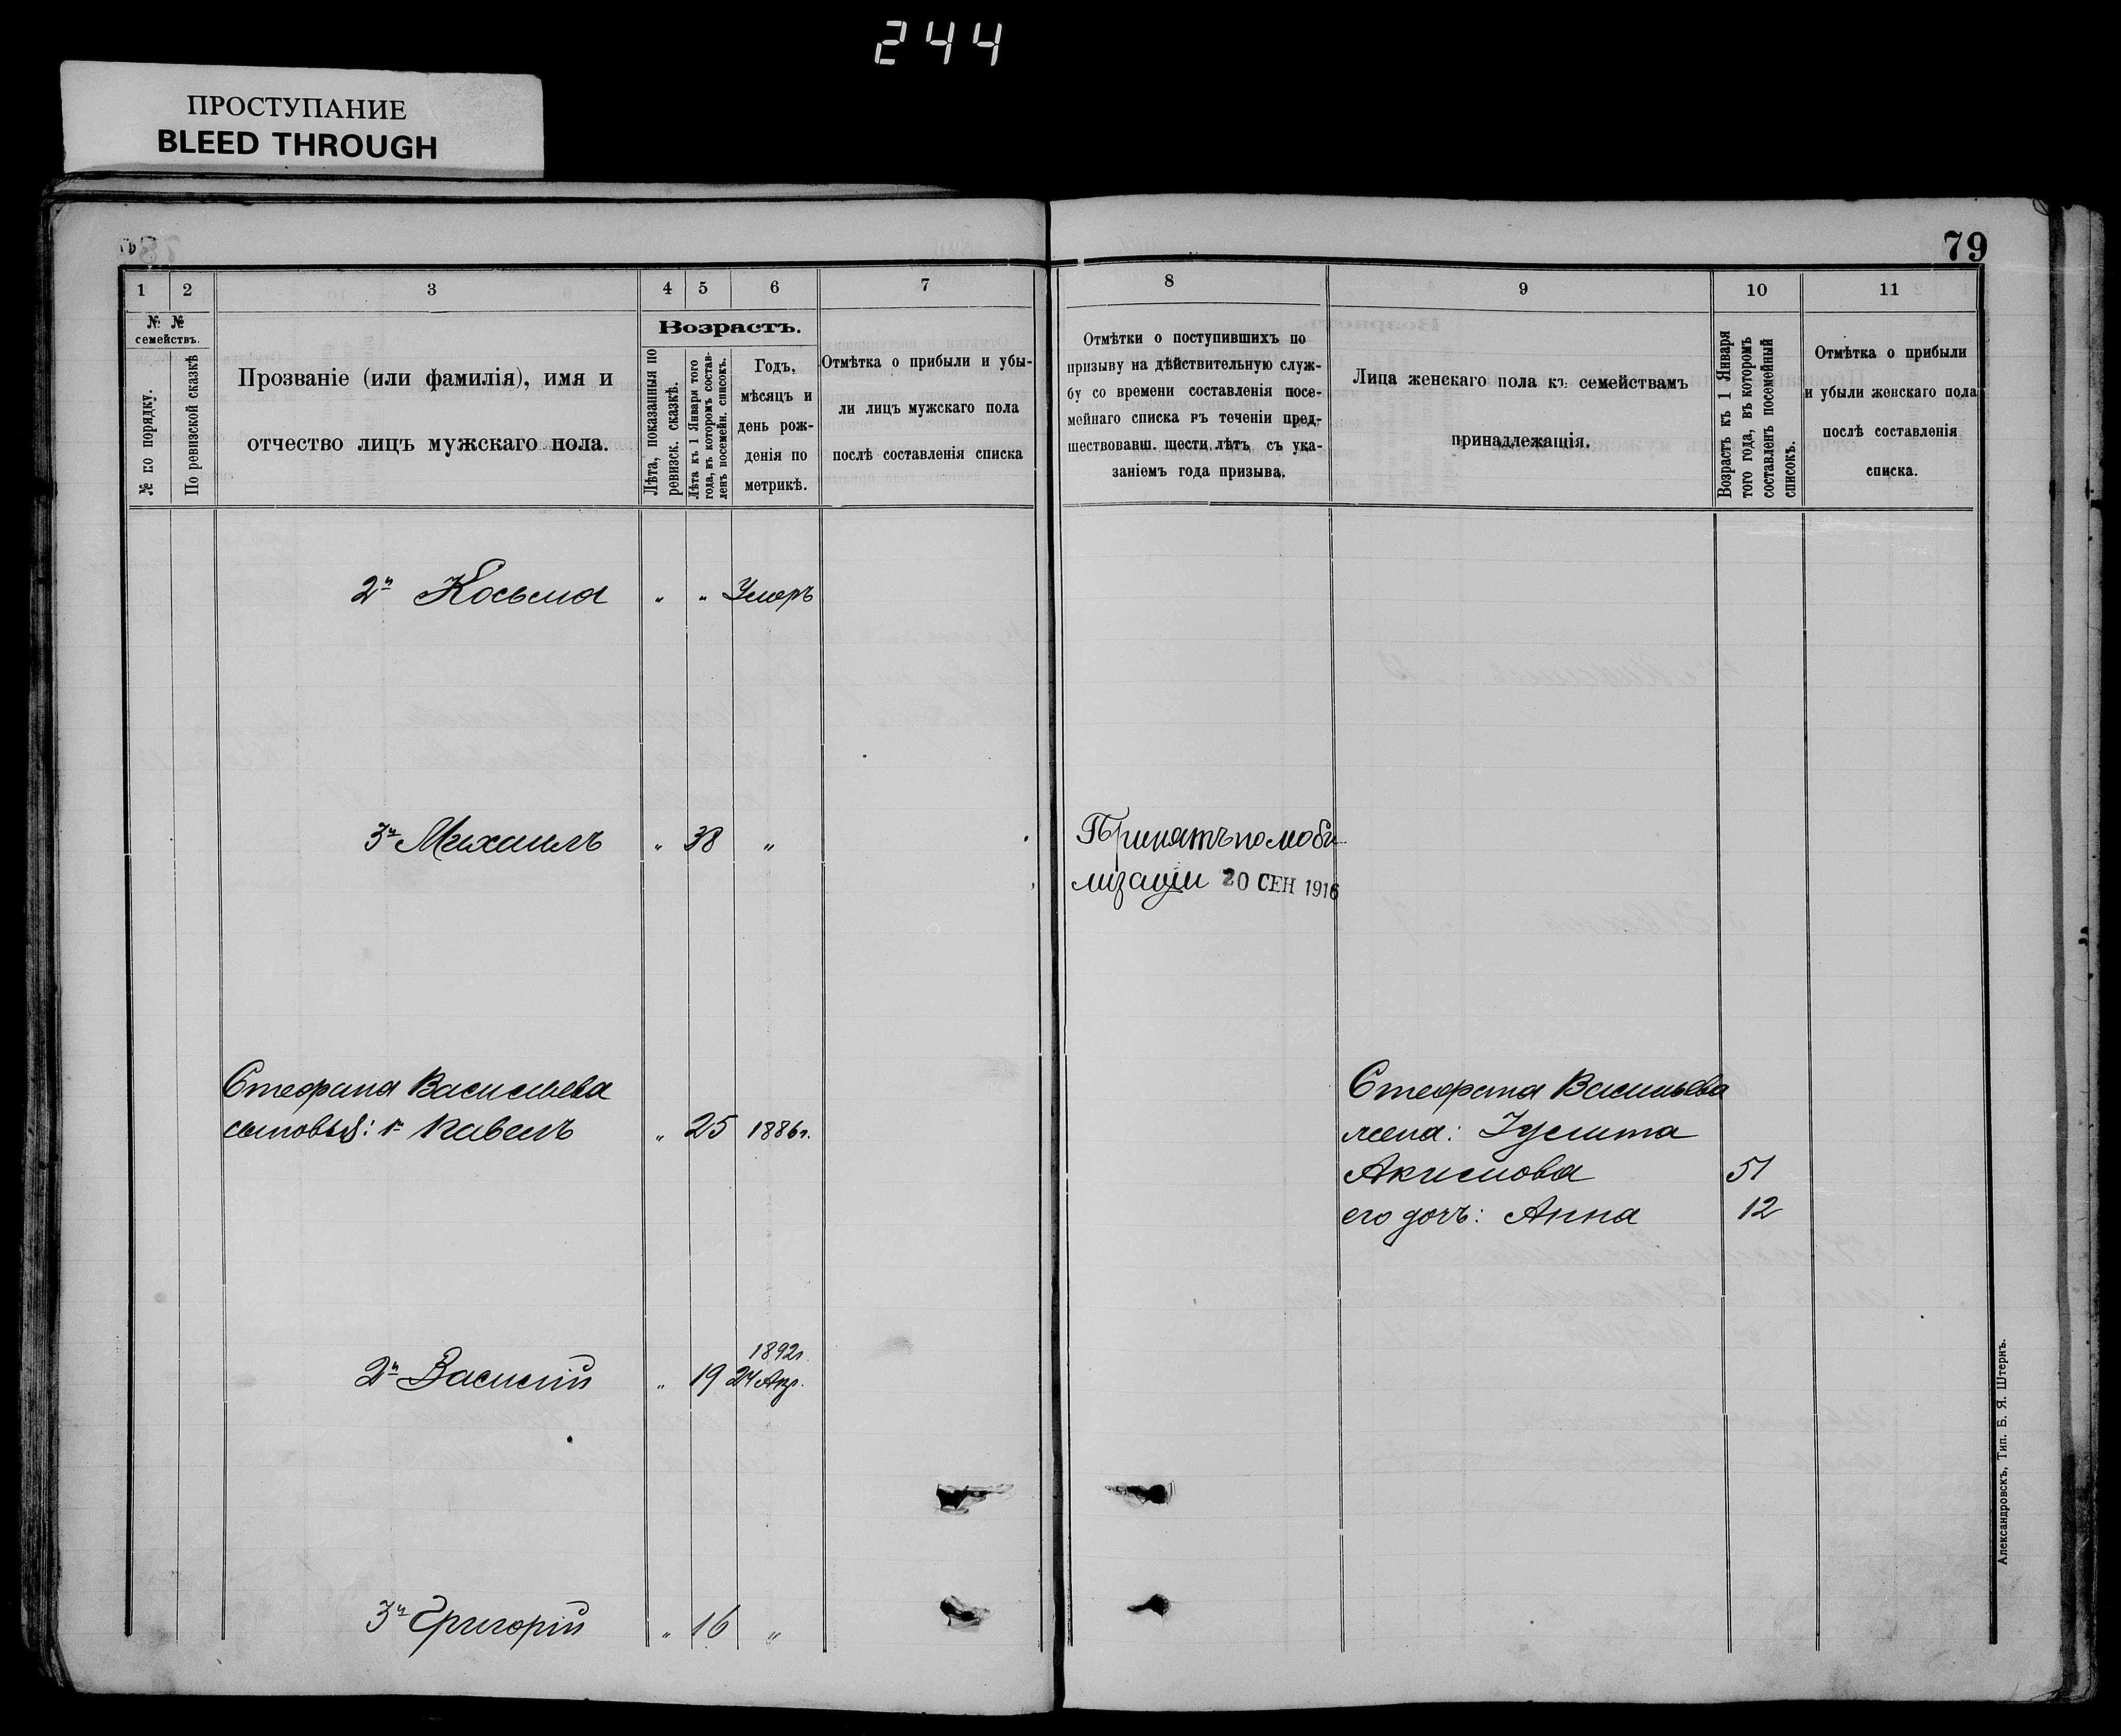 244
ПРОСТУПАНИЕ
BLEED THROUGH
79
1 2 3 4 5 6 7 8 9 10 11
№ №
семействъ.
№ по порядку.
По ревизской сказкѣ
Прозваніе (или фамилія), имя и
отчество лицъ мужскаго пола.
Возрастъ.
Лѣта, показанныя по
ревизск. сказкѣ.
Лѣта къ 1 Января того
года, въ которомъ состав-
ленъ посемейн. списокъ.
Годъ,
мѣсяцъ и
день рож-
денія по
метрикѣ.
Отмѣтка о прибыли и убы-
ли лицъ мужскаго пола
послѣ составленія списка
Отмѣтки о поступившихъ по
призыву на дѣйствительную служ-
бу со времени составленія посе-
мейнаго списка въ теченіи пред-
шествовавш. шести лѣтъ съ ука-
заніемъ года призыва.
Лица женскаго пола къ семействамъ
принадлежащія.
Возрастъ къ 1 Января
того года, въ которомъ
составленъ посемейный
списокъ.
Отмѣтка о прибыли
и убыли женскаго пола
послѣ составленія
списка.
2й Косьма " " Умеръ
3й Михаилъ " 38 "
Принятъ по моби-
лизаціи 20 СЕН 1916
Стефана Васильева
сыновья: 1й Павелъ " 25 1886г.
Стефана Васильева
жена: Іулита
Акимова 51
его дочь: Анна 12
1892г.
2й Василій " 19 24 Апр.
3й Григорій " 16 "
Александровскъ, Тип. Б. Я. Штернъ.